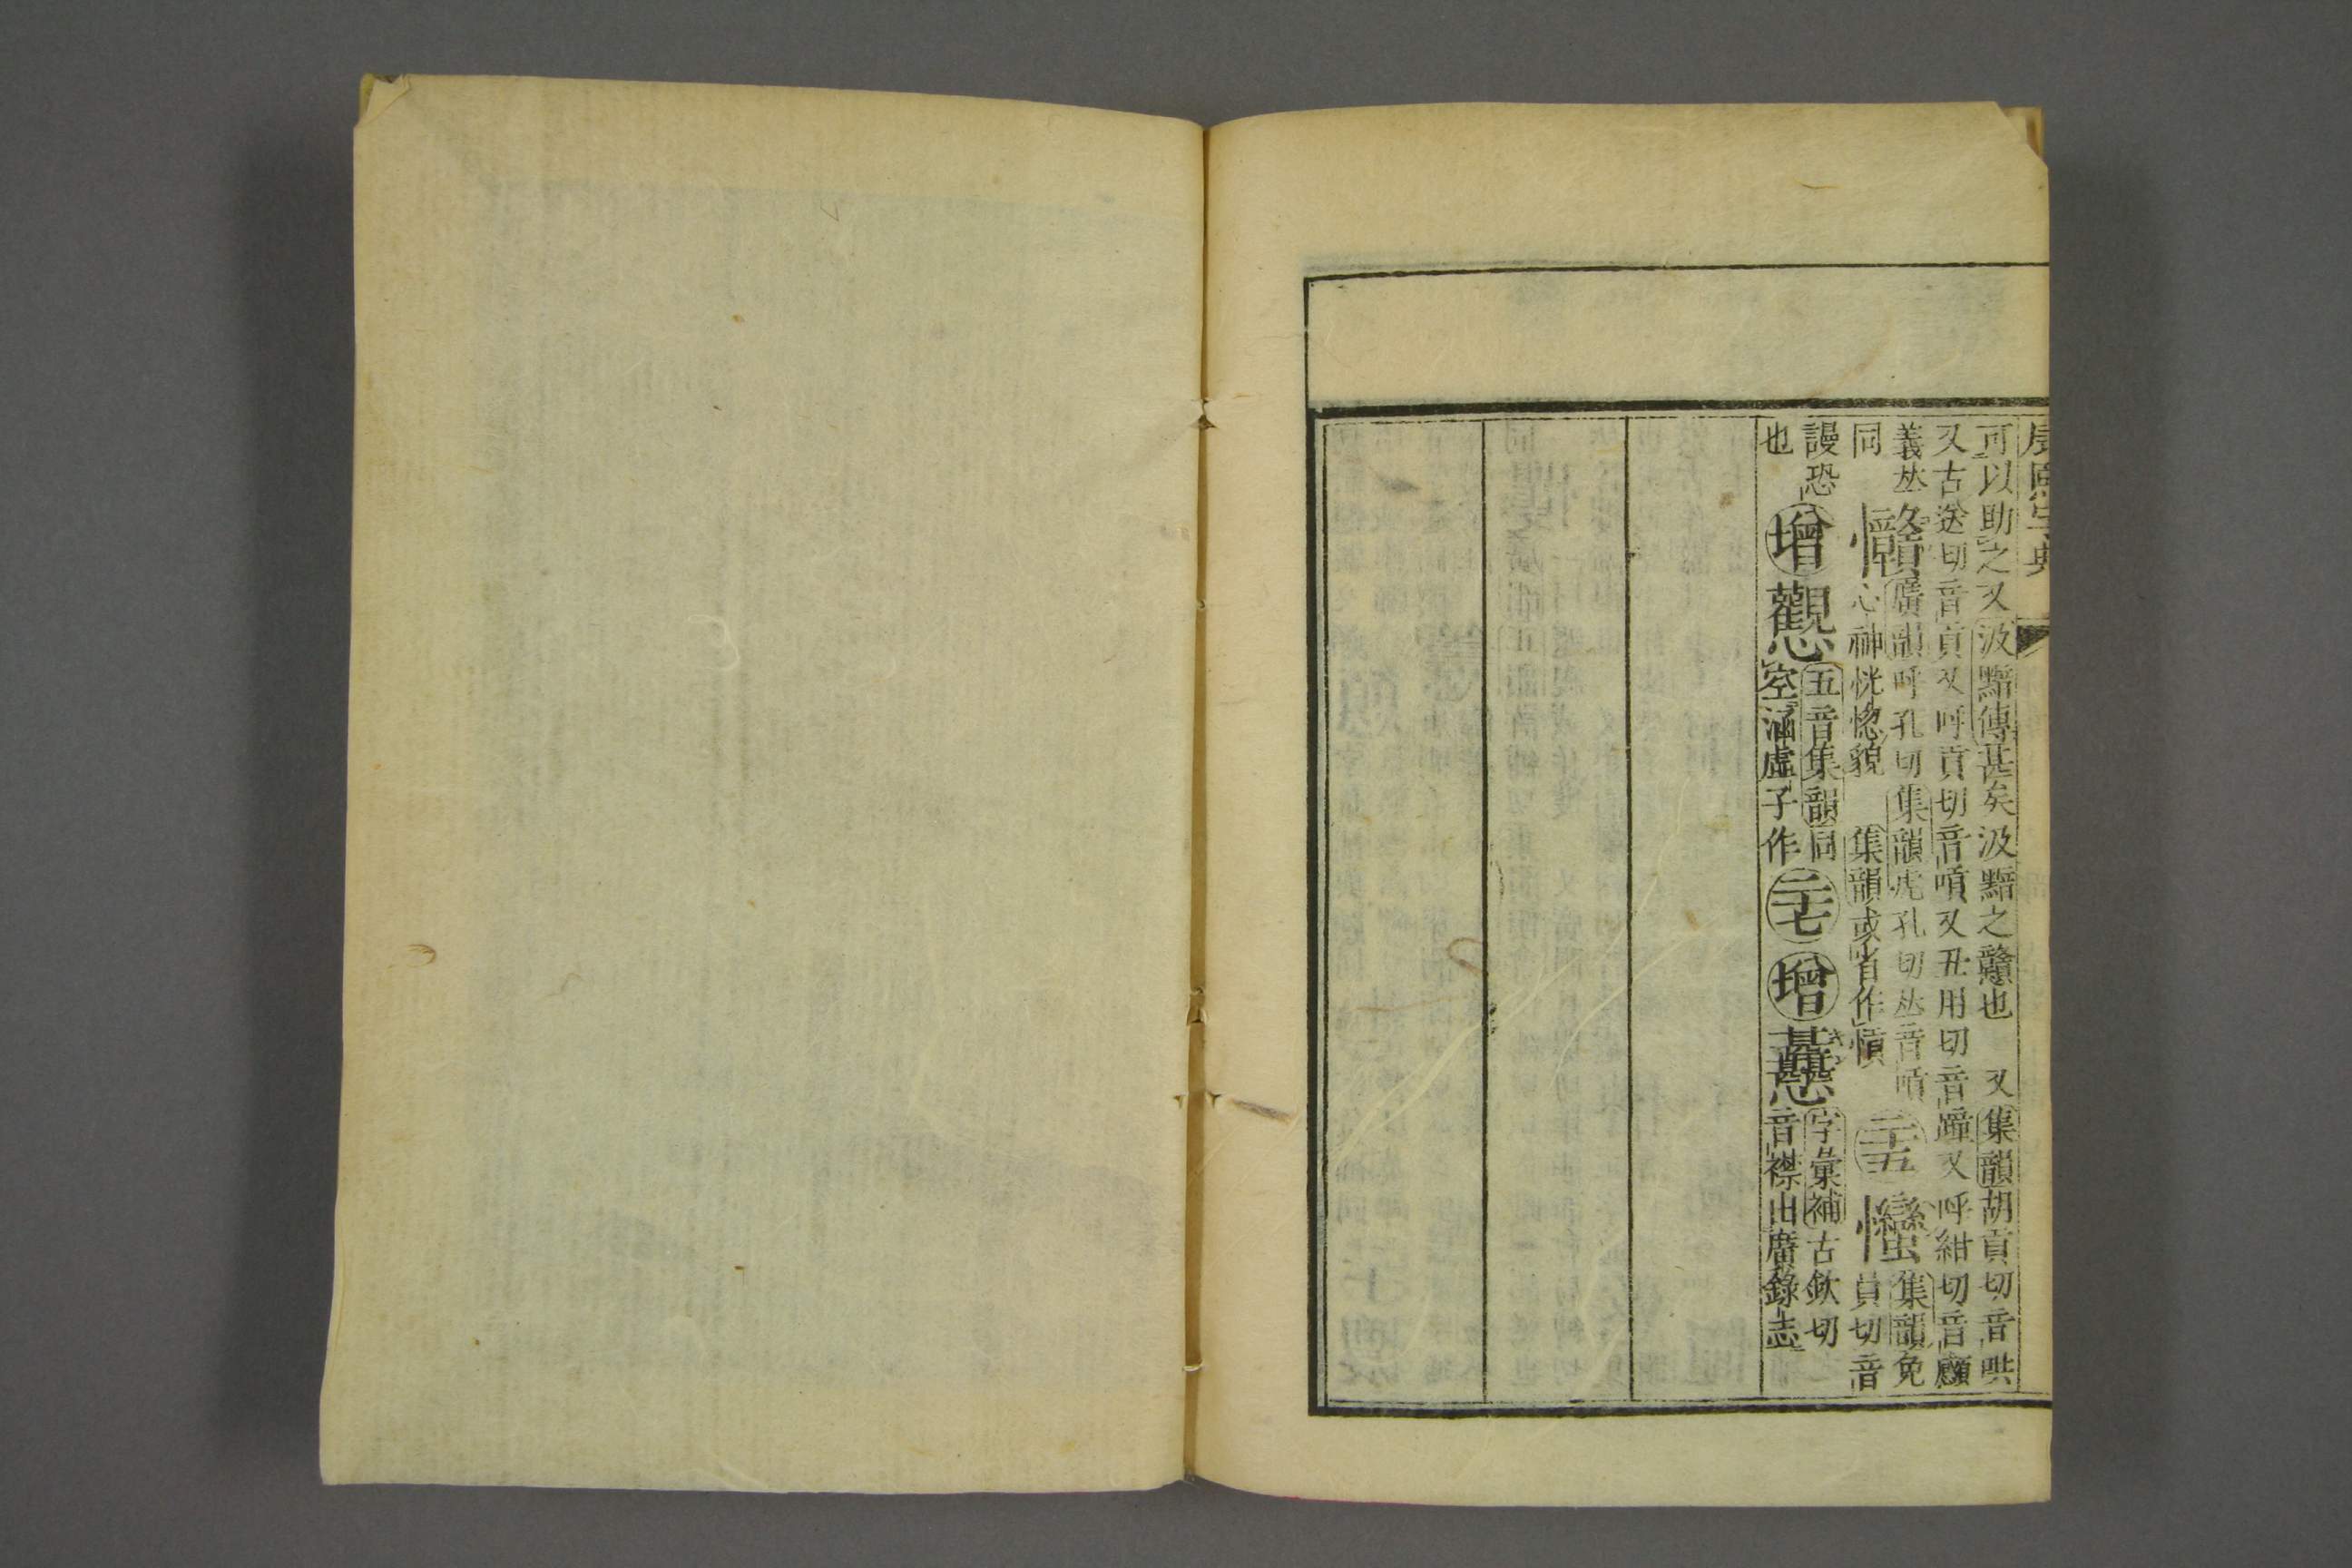 康熙字典
可以助之又汲黯傳甚矣汲黯之戇也　又集韻胡貢切音哄
又古送切音貢又呼貢切音嗊又丑用切音蹱又呼紺切音顑
義𠀤
同
戅廣韻呼孔切集韻虎孔切𠀤音嗊
心神恍惚貌　集韻或省作愩
二十五
集韻免
員切音
謾恐
也
增
五音集韻同
空涵虛子作
二十七
增
字彙補古欽切
音襟出廣錄志